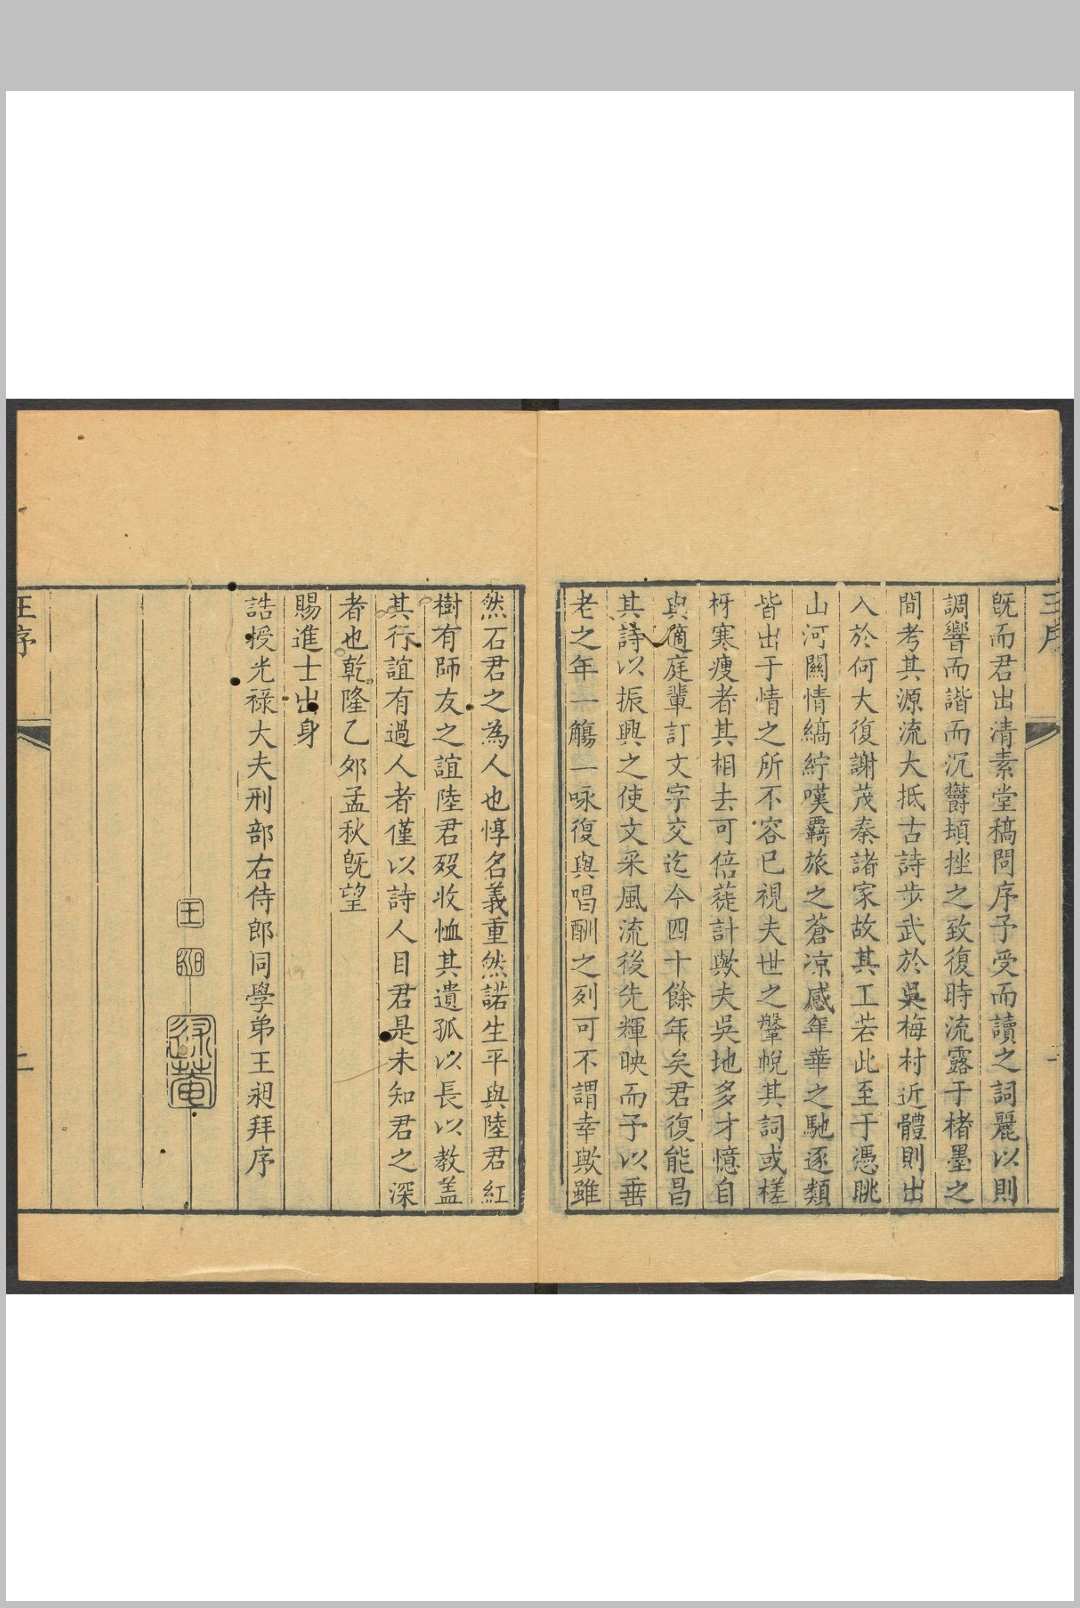 王序
旣而君出清素堂稿問序予受而讀之詞麗以則
調響而諧而沉鬱頓挫之致復時流露于楮墨之
間考其源流大抵古詩步武於吳梅村近體則出
入於何大復謝茂秦諸家故其工若此至于憑眺
山河關情縞紵嘆羇旅之蒼凉感年華之馳逐類
皆出于情之所不容已視夫世之鞶帨其詞或槎
枒寒瘦者其相去可倍蓰計歟夫吳地多才憶自
與適庭輩訂文字交迄今四十餘年矣君復能昌
其詩以振興之使文采風流後先輝映而予以垂
老之年一觴一咏復與唱酬之列可不謂幸歟雖
然石君之為人也惇名義重然諾生平與陸君紅
樹有師友之誼陸君歿收恤其遺孤以長以教蓋
其行誼有過人者僅以詩人目君是未知君之深
者也乾隆乙夘孟秋旣望
賜進士出身
誥授光祿大夫刑部右侍郎同學弟王昶拜序
王昶
述菴
王序
二